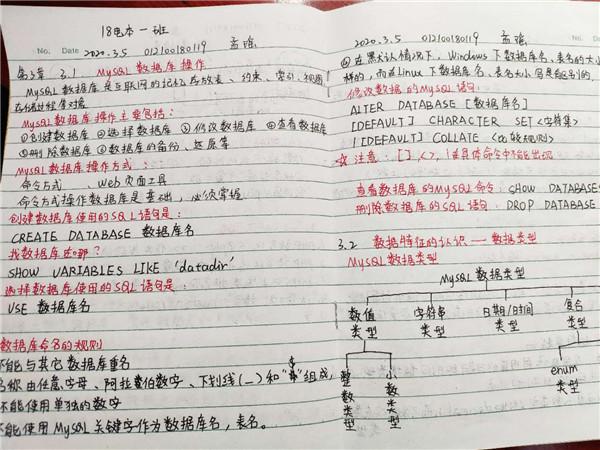 18电本一班
No. Date 2020.3.5 012100180119 孟瑜
3.1 MySQL 数据库操作
MySQL 数据库是互联网的记录存放表、约束、索引、视图
存储过程等对象
MySQL数据库操作主要包括:
①创建数据库 ②选择数据库 ③修改数据库 ④查看数据库
⑤删除数据库 ⑥数据库的备份、还原等
MySQL数据库操作方式:
命令方式 、Web页面工具
命令方式操作数据库是基础,必须掌握
创建数据库使用的SQL语句是:
CREATE DATABASE 数据库名
找数据库在哪?
SHOW VARIABLES LIKE 'datadir'
选择数据库使用的SQL语句是:
USE 数据库名
数据库命名的规则
不能与其它数据库重名
名称由任意字母、阿拉伯数字、下划线(_)和"$"组成,
不能使用单独的数字
不能使用MySQL关键字作为数据库名,表名。
No. Date 2020.3.5 012100180119 孟瑜
④在默认情况下,Windows下数据库名、表名的大小
样的,而在Linux下数据库名、表名大小写是区别的.
修改数据的MySQL语句:
ALTER DATABASE [数据库名]
[DEFAULT] CHARACTER SET <字符集>
[DEFAULT] COLLATE <比较规则>
☆ 注意:[]、<>、|在具体命令中不能出现
查看数据库的MySQL命令:SHOW DATABAS
删除数据库的SQL语句:DROP DATABASE
3.2 数据特征的认识——数据类型
MySQL数据类型
MySQL 数据类型
数值类型 字符串类型 日期/时间类型 复合类型
整数类型 小数类型 enum类型